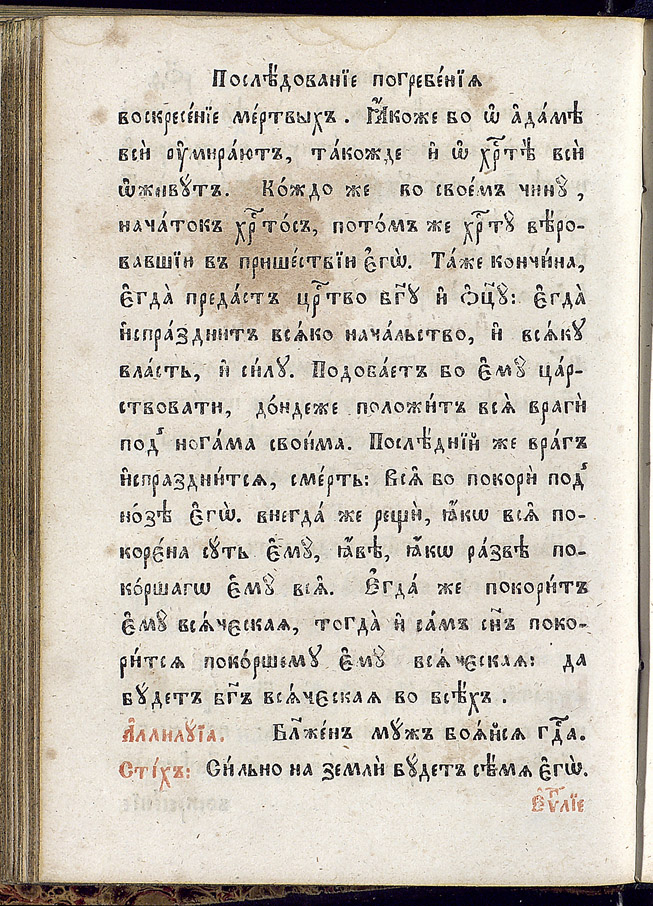 Послѣ́дованїе погребе́нїѧ
воскресе́нїе ме́ртвыхъ . Ꙗ҆́коже бо ѡ҆ а҆да́мѣ
всѝ оу҆мира́ютъ, та́кожде и҆ ѡ҆ хрⷭ҇тѣ̀ всѝ
ѡ҆живꙋ́тъ. Ко́ждо же во свое́мъ чинꙋ̀,
нача́токъ хрⷭ҇то́съ, пото́мъ же хрⷭ҇тꙋ̀ вѣ́ро-
вавшїи въ прише́ствїи є҆гѡ̀. Та́же кончи́на,
є҆гда̀ преда́стъ црⷭ҇тво бг҃ꙋ и҆ ѻ҆ц҃ꙋ̀: є҆гда̀
и҆спра́зднитъ всѧ́ко нача́льство, и҆ всѧ́кꙋ
вла́сть, и҆ си́лꙋ. Подоба́етъ бо є҆мꙋ̀ ца́р-
ствовати, до́ндеже положи́тъ всѧ̑ врагѝ
под̾ нога́ма свои́ма. Послѣ́днїй же вра́гъ
и҆спраздни́тсѧ, сме́рть: Всѧ̑ бо покорѝ под̾
но́зѣ є҆гѡ̀. внегда́ же рещѝ, ꙗ҆́кѡ всѧ̑ по-
коре́на сꙋ́ть є҆мꙋ̀, ꙗ҆́вѣ, ꙗ҆́кѡ ра́звѣ по-
ко́ршагѡ є҆мꙋ̀ всѧ̑. Є҆гда́ же покори́тъ
є҆мꙋ̀ всѧ́ческаѧ, тогда̀ и҆ са́мъ сн҃ъ поко-
ри́тсѧ поко́ршемꙋ є҆мꙋ̀ всѧ́ческаѧ: да
бꙋ́детъ бг҃ъ всѧ́ческаѧ во всѣ́хъ .
А҆ллилꙋ́їа. Бл҃же́нъ мꙋ́жъ боѧ́йсѧ гдⷭ҇а.
Сті́хъ: Си́льно на землѝ бꙋ́детъ сѣ́мѧ є҆гѡ̀.
Є҆ѵⷢ҇лїе